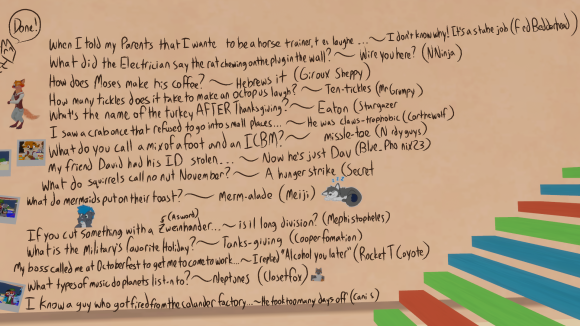 Done!
When I told my Parents that I want to be a horse trainer, laughe ...~ I don't know why! It's a stable job (
What did the Electrician say the rat chewing on the plug in the wall? ~ Wire you here? (NNinja)
How does Moses make his coffee? ~ Hebrews it (Giroux Sheppy)
How many tickles does it take to make an octopus laugh? ~ Ten-tickles (Mr Grompy)
What's the name of the turkey AFTER Thanksgiving? ~ Eaton (Stargazer
I saw a crab once that refused to go into small places... ~ He was claws-trophobic (Corthewolf)
What do you call a mix of a foot and an ICBM? ~ missle-toe (N rdy guys)
My friend David had his ID stolen... ~ Now he's just Dav (Blue_Pho nix23)
What do squirrels call no nut November? ~ A hunger strike (Secret
What do mermaids put on their toast? ~ Merm-alade (Meiji)
(A sword)
If you cut something with a Zweihander...~ is it long division? (Mephistopheles)
What is the Military's favorite Holiday? ~ Tanks-giving (Cooperfomation)
My boss called me at Octoberfest to get me to come to work...~ I replied "Alcohol you later" (Rocket T Coyote)
What types of music do planets list-n to? ~ Neptunes (Closetfox)
I know a guy who got fired from the calander factory...~ He took too many days off (Cani s)